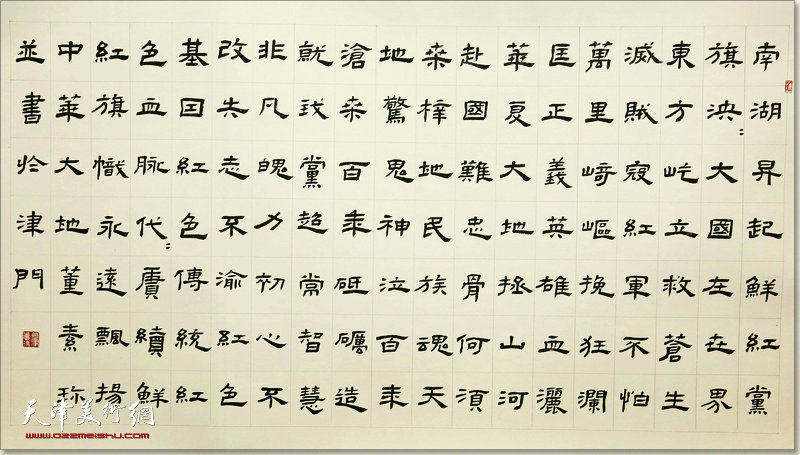 南湖昇起鮮紅黨
旗泱〻大國在世界
東方屹立救蒼生
滅賊寇紅軍不怕
萬里崎嶇挽狂瀾
匡正義英雄血灑
華夏大地拯山河
赴國難忠骨何須
桑梓地民族魂天
地驚鬼神泣百年
滄桑百年砥礪造
就我黨超常智慧
非凡魄力初心不
改矢志不渝紅色
基因紅色傳統紅
色血脈代〻賡續鮮
紅旗幟永遠飄揚
中華大地董素珍
並書於津門
天津美術網
www.022meishu.com